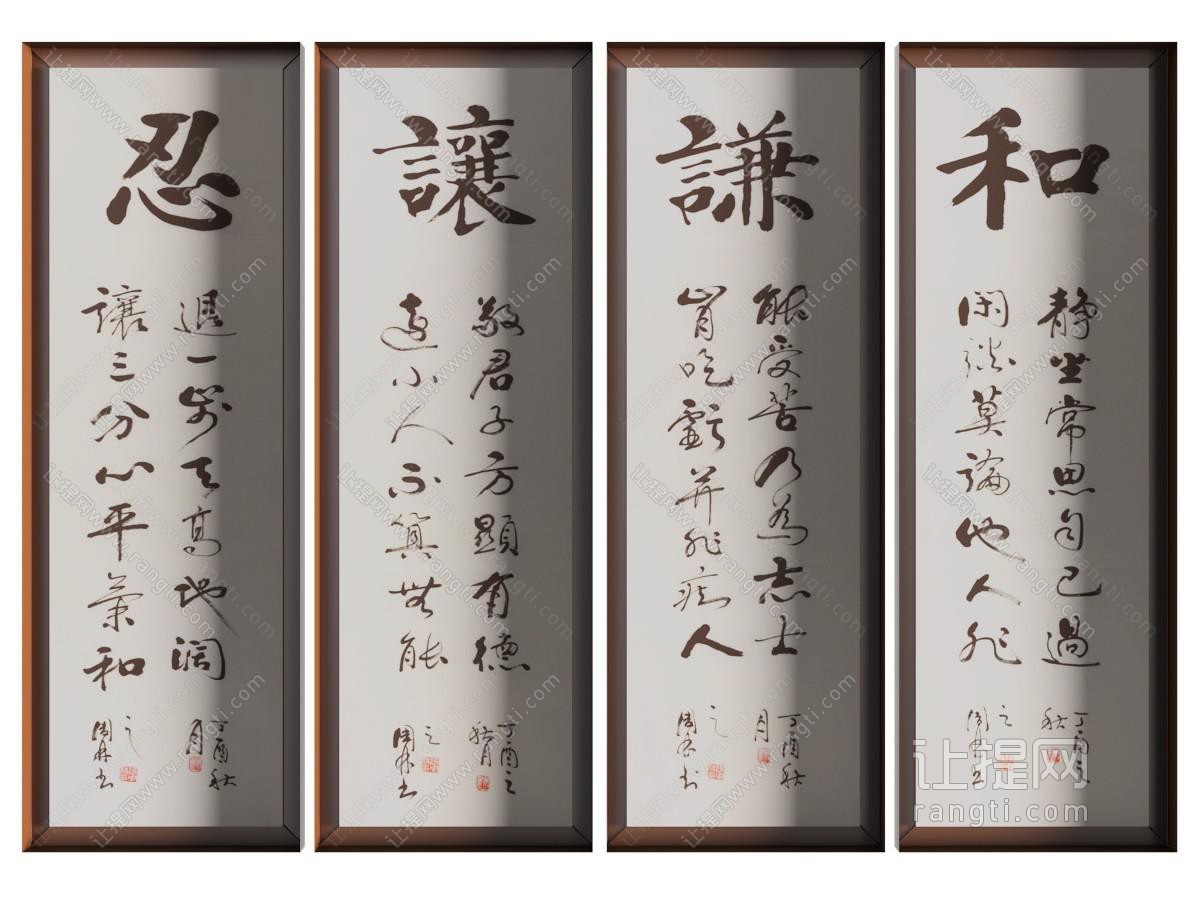 和
静坐常思自己過
閑談莫論他人非
丁酉之
秋
謙
能受苦乃為志士
肯吃虧并非痴人
丁酉秋
月
讓
敬君子方顯有德
遠小人不算無能
丁酉之
秋月
忍
退一步天高地阔
讓三分心平氣和
丁酉秋
月
让提网
rangti.com
让提网www.rangti.com